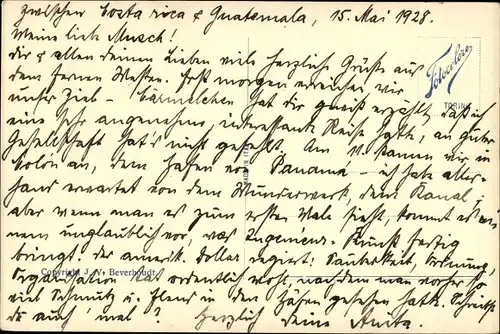 zwischen Costa rica & Guatemala, 15. Mai 1928.
Meine liebe Musch!
Dir & allen deinen Lieben viele herzliche Grüße aus
dem fernen Westen. Erst morgen erreichen wir
unser Ziel – hat dir gewiß erzählt, daß ich
eine sehr angenehme, interessante Reise hatte, an guter
Gesellschaft hat's nicht gefehlt. Am 11. kamen wir in
Colón an, dem Hafen von Panamá – ich habe aller-
hand erwartet von dem Wunderwerk, dem Kanal,
aber wenn man es zum ersten Male sieht, kommt es ei-
nem unglaublich vor, was Ingenieurs-Kunst fertig
bringt. der amerik. Dollar regiert: Sauberkeit, Ordnung
Organisation tat ordentlich wohl, nachdem man vorher so
viel Schmutz u. Elend in den Häfen gesehen hatte. Schreibst
du auch 'mal? Herzlich deine Anita.
Fotocolore
TORINO
Copyright J. V. Beverhoudt